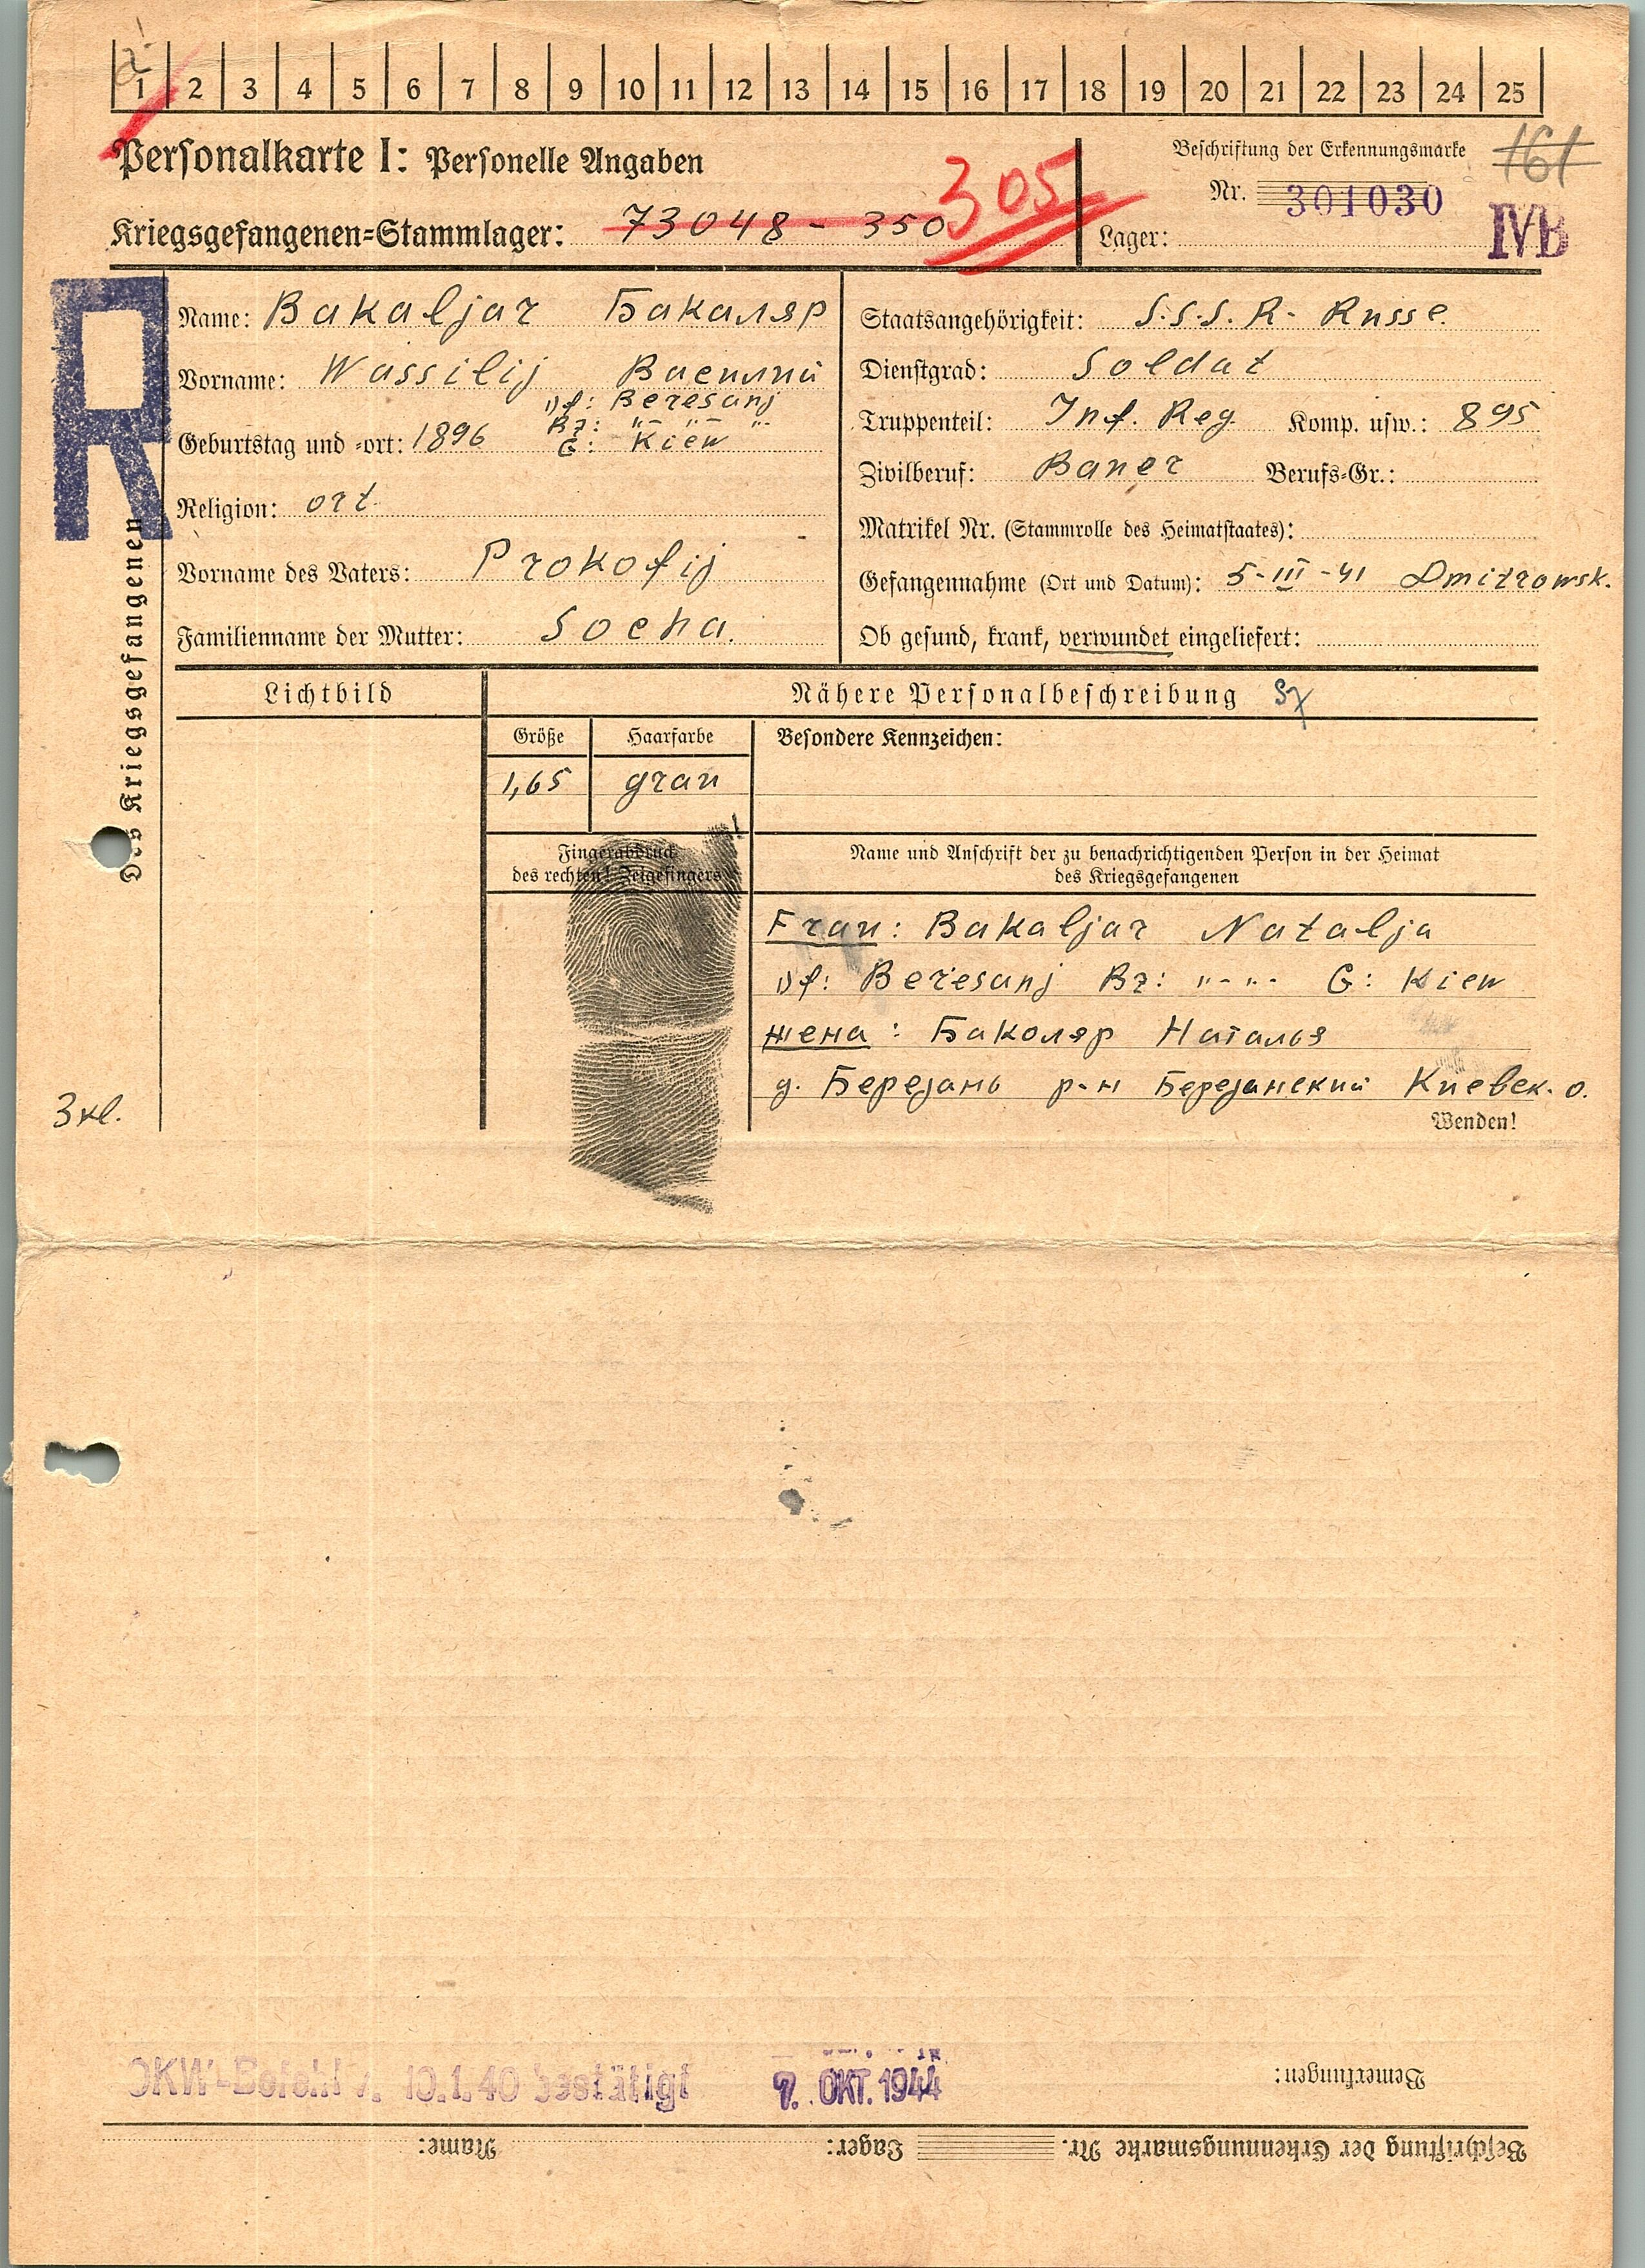 1 2 3 4 5 6 7 8 9 10 11 12 13 14 15 16 17 18 19 20 21 22 23 24 25
Personalkarte I: Personelle Angaben
Beschriftung der Erkennungsmarke
161
Nr. 301030
305
Kriegsgefangenen-Stammlager: 73048 - 350
Lager: IVB
R
Des Kriegsgefangenen
Name: Bakaljar Бакаляр
Vorname: Wassilij Василий
Df: Beresanj
Bz: "- "- "-
Geburtstag und -ort: 1896 G: Kiew
Religion: ort.
Vorname des Vaters: Prokofij
Familienname der Mutter: Socha.
Staatsangehörigkeit: S.S.S.R. Russe.
Dienstgrad: Soldat
Truppenteil: Inf. Reg. Komp. usw.: 895
Zivilberuf: Bauer Berufs-Gr.:
Matrikel Nr. (Stammrolle des Heimatstaates):
Gefangennahme (Ort und Datum): 5-III-41 Dmitrowsk.
Ob gesund, krank, verwundet eingeliefert:
Lichtbild
Nähere Personalbeschreibung
Größe
Haarfarbe
Besondere Kennzeichen:
1,65
grau
Fingerabdruck
des rechten! Zeigefingers
Name und Anschrift der zu benachrichtigenden Person in der Heimat
des Kriegsgefangenen
Frau: Bakaljar Natalja
Df: Beresanj Bz: "-"- G: Kiew
жена: Баколяр Наталья
д. Березань р-н Березанский Киевск. о.
3 кл.
Wenden!
OKW-Befehl v. 10.1.40 bestätigt 9. OKT. 1944
Bemerkungen:
Beschriftung der Erkennungsmarke Nr. Lager: Name: